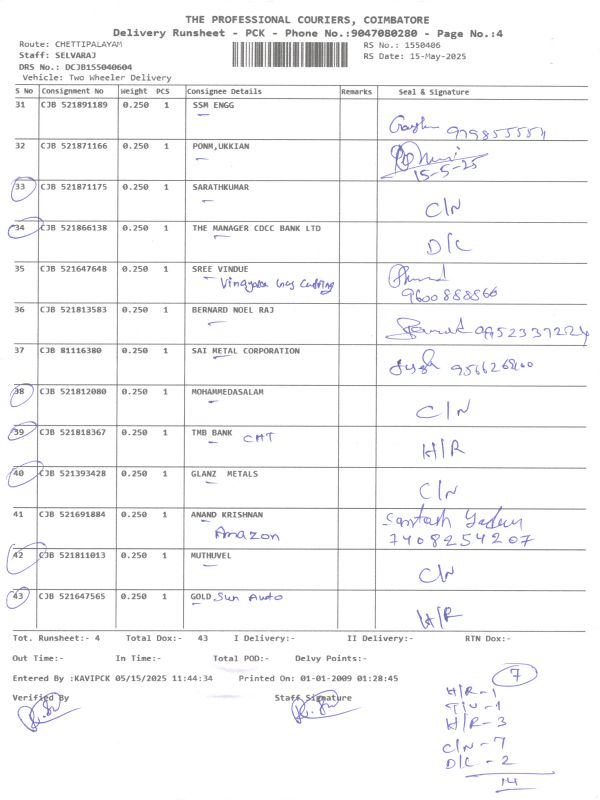 THE PROFESSIONAL COURIERS, COIMBATORE
Delivery Runsheet - PCK - Phone No.:9047080280 - Page No.:4
Route: CHETTIPALAYAM
RS No.: 1550406
Staff: SELVARAJ
RS Date: 15-May-2025
DRS No.: DCJB155040604
Vehicle: Two Wheeler Delivery
S No Consignment No Weight PCS Consignee Details Remarks Seal & Signature
31 CJB 521891189 0.250 1 SSM ENGG
32 CJB 521871166 0.250 1 PONM,UKKIAN
15-5-25
33 CJB 521871175 0.250 1 SARATHKUMAR
C/N
34 CJB 521866138 0.250 1 THE MANAGER CDCC BANK LTD
D/C
35 CJB 521647648 0.250 1 SREE VINDUE
9600888866
36 CJB 521813583 0.250 1 BERNARD NOEL RAJ
37 CJB 81116380 0.250 1 SAI METAL CORPORATION
38 CJB 521812080 0.250 1 MOHAMMEDASALAM
C/N
39 CJB 521818367 0.250 1 TMB BANK CHT
H/R
40 CJB 521393428 0.250 1 GLANZ METALS
C/N
41 CJB 521691884 0.250 1 ANAND KRISHNAN
Amazon
7408254207
42 CJB 521811013 0.250 1 MUTHUVEL
C/N
43 CJB 521647565 0.250 1 GOLD Sun Auto
H/R
Tot. Runsheet:- 4 Total Dox:- 43 I Delivery:- II Delivery:- RTN Dox:-
Out Time:- In Time:- Total POD:- Delvy Points:-
Entered By :KAVIPCK 05/15/2025 11:44:34 Printed On: 01-01-2009 01:28:45
Verified By Staff Signature
7
H/R - 1
H/R - 3
C/N - 7
D/C - 2
14